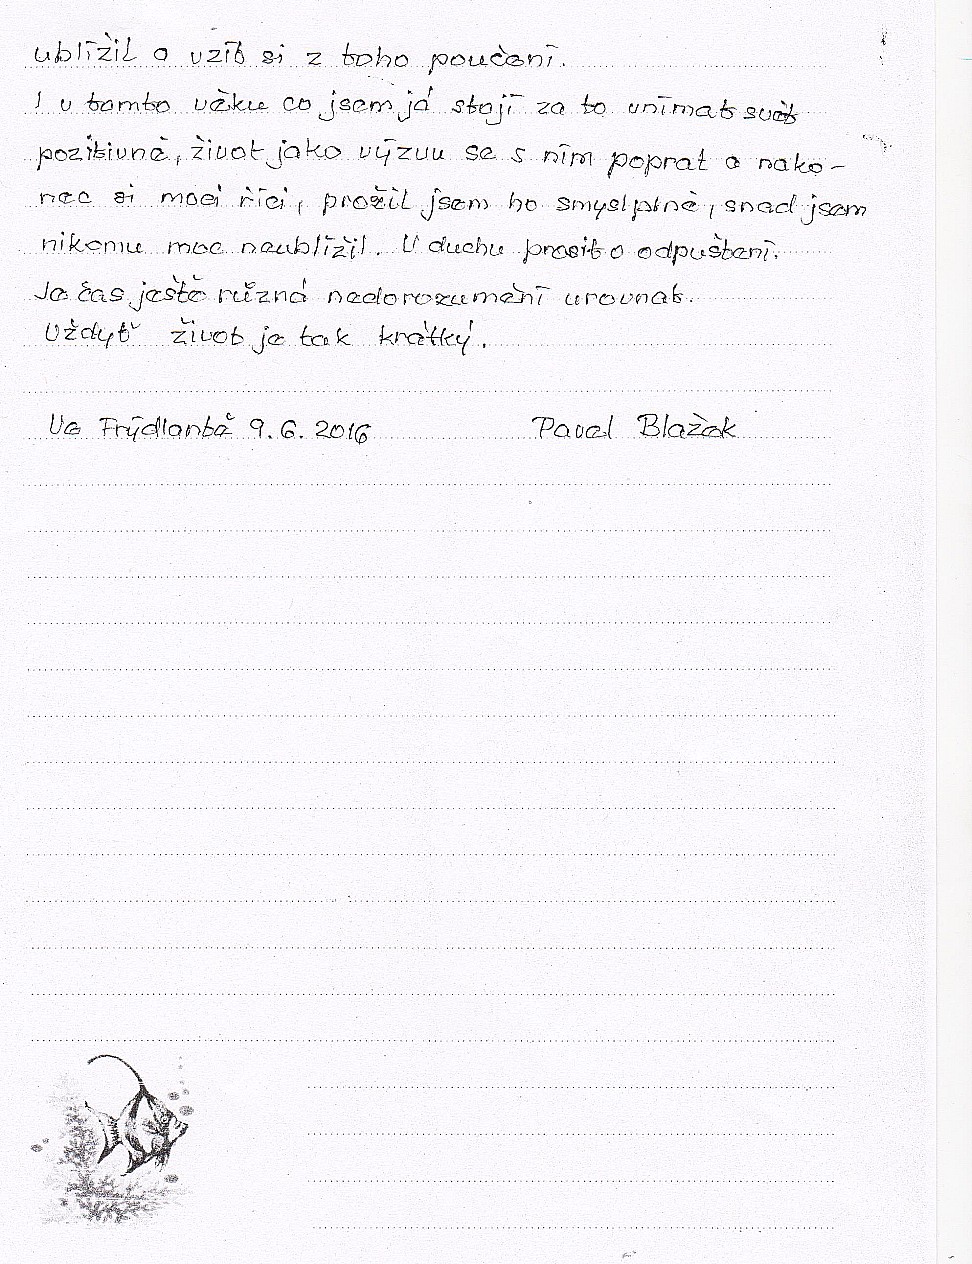 ublížil a vzít si z toho poučení.
I v tomto věku co jsem já stojí za to vnímat svět
pozitivně, život jako výzvu se s ním poprat a nako-
nec si moci říci, prožil jsem ho smyslplně, snad jsem
nikomu moc neublížil. V duchu prosit o odpuštění.
Je čas ještě různá nedorozumění urovnat.
Vždyť život je tak krátký.
Ve Frýdlantě 9.6.2016 Pavel Blažek